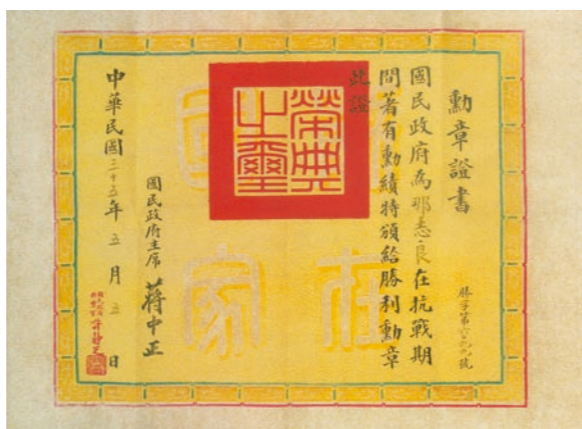 勳章證書
國民政府為邢志良在抗戰期
間著有勳績特頒給勝利勳章
此證
榮典之璽
國民政府主席 蔣中正
中華民國三十五年五月五日
國家
在